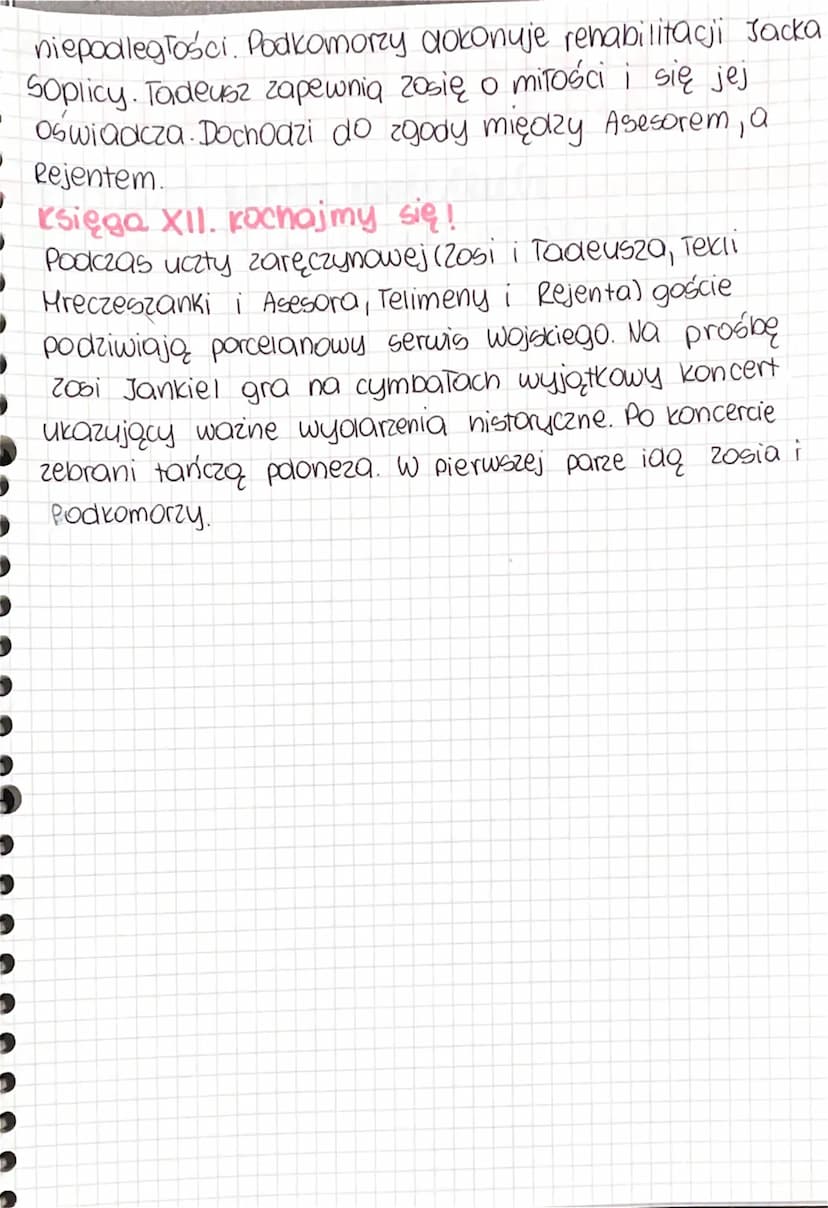 niepodległości. Podkomorzy dokonuje rehabilitacji Jacka
Soplicy. Tadeusz zapewnia Zosię o miłości i się jej
oświadcza. Dochodzi do zgody między Asesorem, a
Rejentem.
Księga XII. Kochajmy się!
Podczas uczty zaręczynowej (Zosi i Tadeusza, Tekli
Hreczeszanki i Asesora, Telimeny i Rejenta) goście
podziwiają porcelanowy serwis Wojskiego. Na prośbę
Zosi Jankiel gra na cymbałach wyjątkowy koncert
ukazujący ważne wydarzenia historyczne. Po koncercie
zebrani tańczą poloneza. W pierwszej parze idą Zosia i
Podkomorzy.